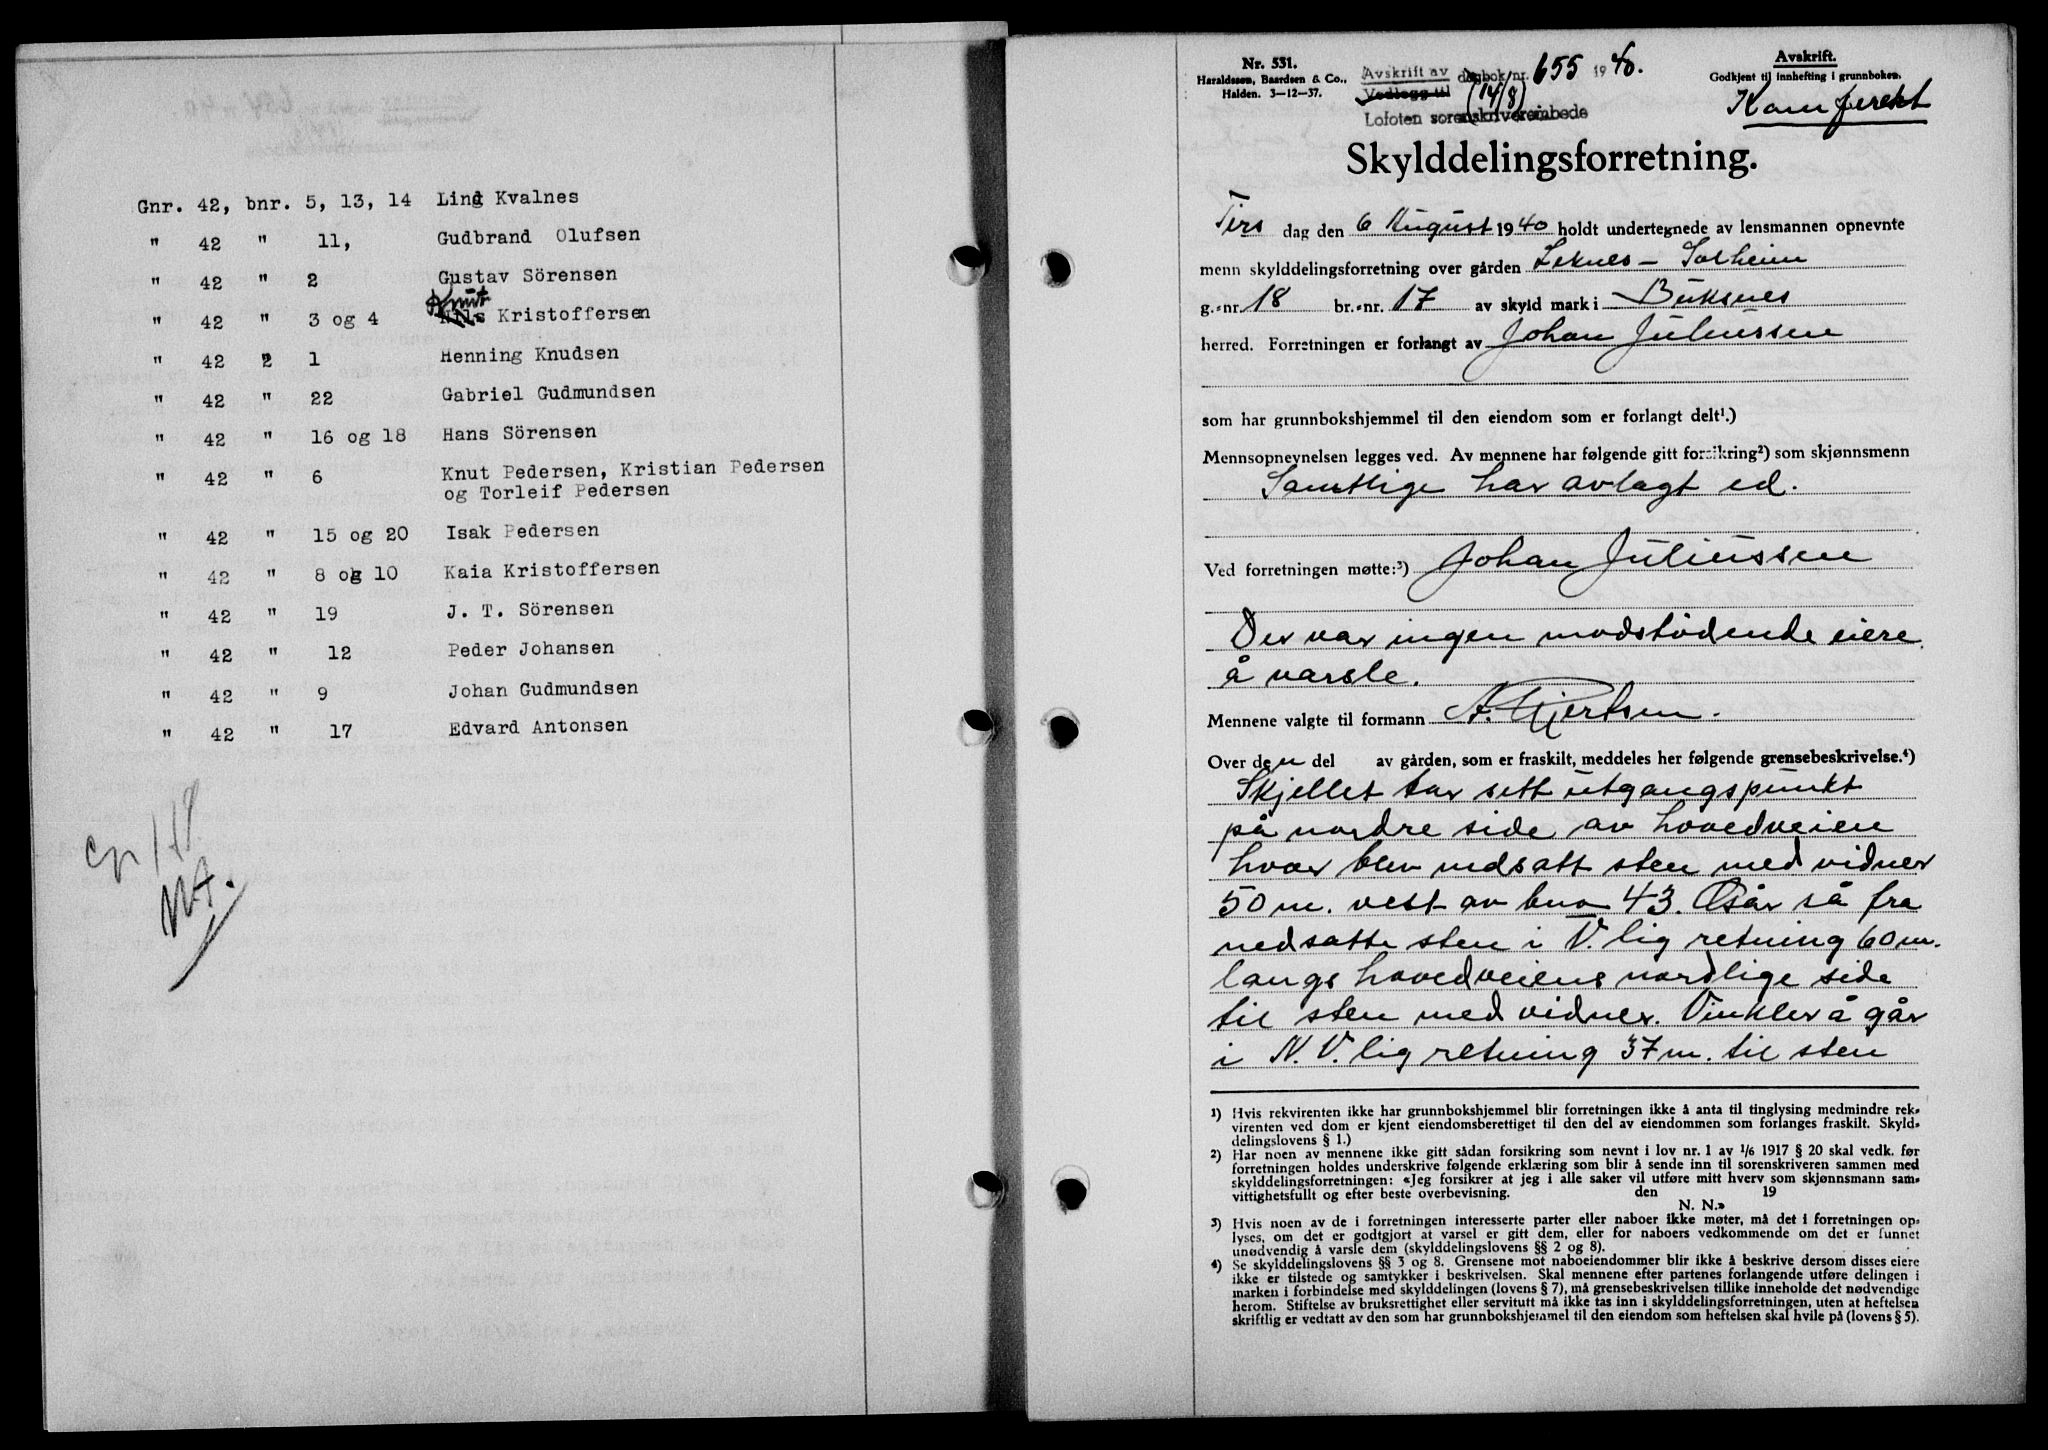 Gnr. 42, bnr. 5, 13, 14 Lind Kvalnes
" 42 " 11, Gudbrand Olufsen
" 42 " 2 Gustav Sörensen
Knut
" 42 " 3 og 4 Nils Kristoffersen
" 42 2 1 Henning Knudsen
" 42 " 22 Gabriel Gudmundsen
" 42 " 16 og 18 Hans Sörensen
" 42 " 6 Knut Pedersen, Kristian Pedersen
og Torleif Pedersen
" 42 " 15 og 20 Isak Pedersen
" 42 " 8 og 10 Kaia Kristoffersen
" 42 " 19 J. T. Sörensen
" 42 " 12 Peder Johansen
" 42 " 9 Johan Gudmundsen
" 42 " 17 Edvard Antonsen
Nr. 531.
Haraldssen, Baardsen & Co.,
Halden. 3-12-37.
Avskrift av dagbok nr. 655 1940.
Vedlegg til (14/8)
Lofoten sorenskriverembede
Avskrift.
Godkjent til innhefting i grunnboken.
Skylddelingsforretning.
Tirs dag den 6 August 1940 holdt undertegnede av lensmannen opnevnte
menn skylddelingsforretning over gården Leknes - Solheim
g.-nr. 18 br.-nr. 17 av skyld mark i Buksnes
herred. Forretningen er forlangt av Johan Juliussen
som har grunnbokshjemmel til den eiendom som er forlangt delt¹.)
Mennsopnevnelsen legges ved. Av mennene har følgende gitt forsikring²) som skjønnsmenn
Samtlige har avlagt ed.
Ved forretningen møtte:³) Johan Juliussen
Der var ingen modstödende eiere
å varsle.
Mennene valgte til formann A. Gjertsen.
Over den del av gården, som er fraskilt, meddeles her følgende grensebeskrivelse.⁴)
Skjellet tar sett utgangspunkt
på nordre side av hovedveien
hvor blev nedsatt sten med vidner
50 m. vest av bno 43. Går så fra
nedsatte sten i V.lig retning 60 m.
langs hovedveiens nordlige side
til sten med vidner. Vinkler å går
i N.V.lig retning 37 m. til sten
¹) Hvis rekvirenten ikke har grunnbokshjemmel blir forretningen ikke å anta til tinglysing medmindre rek-
virenten ved dom er kjent eiendomsberettiget til den del av eiendommen som forlanges fraskilt. Skyld-
delingslovens § 1.)
²) Har noen av mennene ikke gitt sådan forsikring som nevnt i lov nr. 1 av 1/6 1917 § 20 skal vedk. før
forretningen holdes underskrive følgende erklæring som blir å sende inn til sorenskriveren sammen med
skylddelingsforretningen: «Jeg forsikrer at jeg i alle saker vil utføre mitt hverv som skjønnsmann sam-
vittighetsfullt og efter beste overbevisning. den 19
N. N.»
³) Hvis noen av de i forretningen interesserte parter eller naboer ikke møter, må det i forretningen op-
lyses, om det er godtgjort at varsel er gitt dem, eller for naboers vedkommende om det er funnet
unødvendig å varsle dem (skylddelingslovens §§ 2 og 8).
⁴) Se skylddelingslovens §§ 3 og 8. Grensene mot naboeiendommer blir ikke å beskrive dersom disses eiere
ikke er tilstede og samtykker i beskrivelsen. Skal mennene efter partenes forlangende utføre delingen i
marken i forbindelse med skylddelingen (lovens § 7), må grensebeskrivelsen tillike inneholde det nødvendige
herom. Stiftelse av bruksrettighet eller servitutt må ikke tas inn i skylddelingsforretningen, uten at heftelsen
skriftlig er vedtatt av den som har grunnbokshjemmel til den eiendom som heftelsen skal hvile på (lovens § 5).